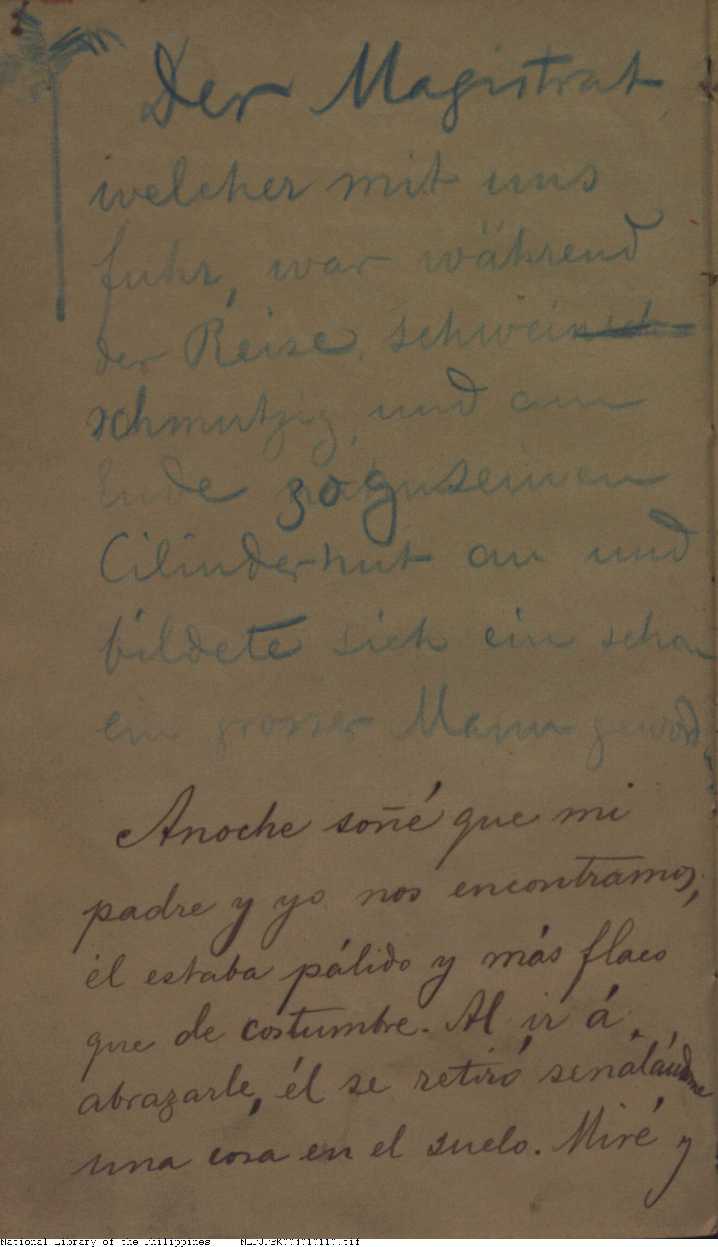 Der Magistrat,
welcher mit uns
fuhr, war während
der Reise, schwein
schmutzig, und am
Ende zog seinen
Cilinderhut an und
bildete sich ein schon
ein grosser Mann
Anoche soñé que mi
padre y yo nos encontramos,
él estaba pálido y más flaco
que de costumbre. Al ir á
abrazarle, él se retiró señalándome
una cosa en el suelo. Miré y
National Library of the Philippines